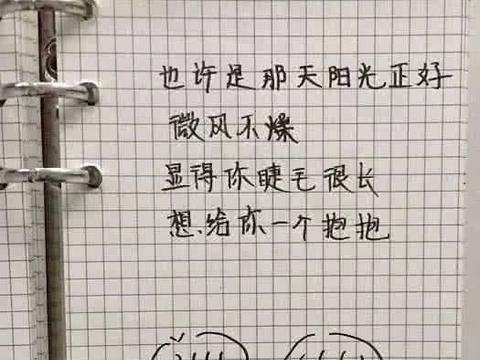 也许是那天阳光正好
微风不燥
显得你睫毛很长
想给你一个抱抱